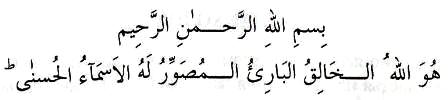 بِسمِ اللهِ الرَّحـــمٰنِ الرَّحِيم
هُوَ اللهُ الـــخَالِقُ البَارِئُ الـــمُصَوِّرُ لَهُ الاَسمَآءُ الحُسنٰى ؕ